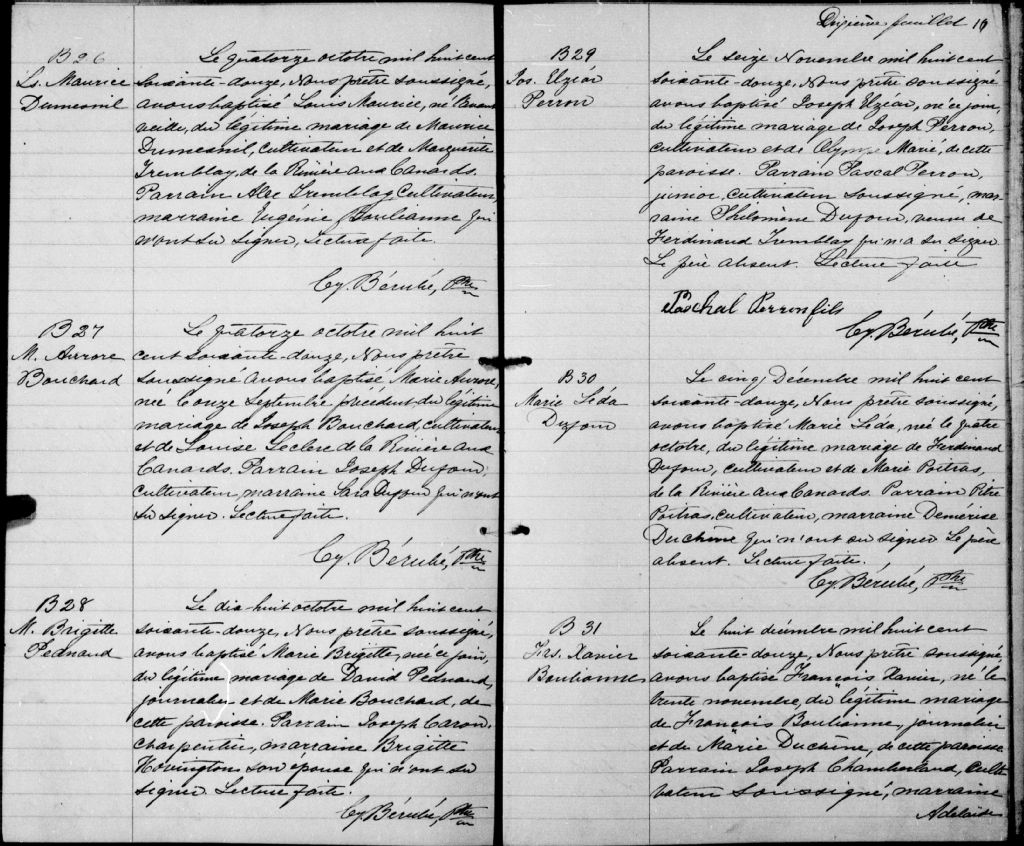 B 26
Ls. Maurice
Dumesnil
Le quatorze octobre mil huit cent
soixante-douze, Nous prêtre soussigné,
avons baptisé Louis Maurice, né l'avant
veille, du légitime mariage de Maurice
Dumesnil, cultivateur et de Marguerite
Tremblay, de la Rivière aux Canards.
Parrain Alex Tremblay Cultivateur,
marraine Eugenie Boulianne qui
n'ont su signer, Lecture faite.
Cy. Bérubé, Ptre
B 27
M. Aurore
Bouchard
Le quatorze octobre mil huit
cent soixante-douze, Nous prêtre
soussigné avons baptisé Marie Aurore,
née le onze Septembre précédent du légitime
mariage de Joseph Bouchard, cultivateur
et de Louise Leclerc de la Rivière aux
Canards. Parrain Joseph Dufour,
cultivateur, marraine Sara Dufour qui n'ont
su signer. Lecture faite.
Cy. Bérubé, Ptre
B 28
M. Brigitte
Pednaud
Le dix-huit octobre mil huit cent
soixante-douze, Nous prêtre soussigné,
avons baptisé Marie Brigitte, née ce jour,
du légitime mariage de David Pednaud,
journalier et de Marie Bouchard, de
cette paroisse. Parrain Joseph Caron,
charpentier, marraine Brigitte
Hovington son épouse qui n'ont su
signer. Lecture faite.
Cy. Bérubé, Ptre
Dixième feuillet 10
B 29
Jos. Elzéar
Perron
Le seize Novembre mil huit cent
soixante-douze, Nous prêtre soussigné
avons baptisé Joseph Elzéar, né ce jour,
du légitime mariage de Joseph Perron,
cultivateur et de Olympe Marié, de cette
paroisse. Parrain Pascal Perron,
junior, cultivateur soussigné, mar-
raine Philomène Dufour, veuve de
Ferdinand Tremblay qui n'a su signer
Le père absent. Lecture faite
Paschal Perron fils
Cy. Bérubé, Ptre
B 30
Marie Léda
Dufour
Le cinq Décembre mil huit cent
soixante-douze, Nous prêtre soussigné,
avons baptisé Marie Léda, née le quatre
octobre, du légitime mariage de Ferdinand
Dufour, cultivateur et de Marie Poitras,
de la Rivière aux Canards. Parrain Pitre
Poitras, cultivateur, marraine Demérise
Duchêne qui n'ont su signer Le père
absent. Lecture faite.
Cy. Bérubé, Ptre
B 31
Frs. Xavier
Boulianne
Le huit décembre mil huit cent
soixante-douze, Nous prêtre soussigné,
avons baptisé François Xavier, né le
trente novembre, du légitime mariage
de François Boulianne, journalier
et de Marie Duchêne, de cette paroisse.
Parrain Joseph Chamberland, Culti
vateur soussigné, marraine
Adelaide